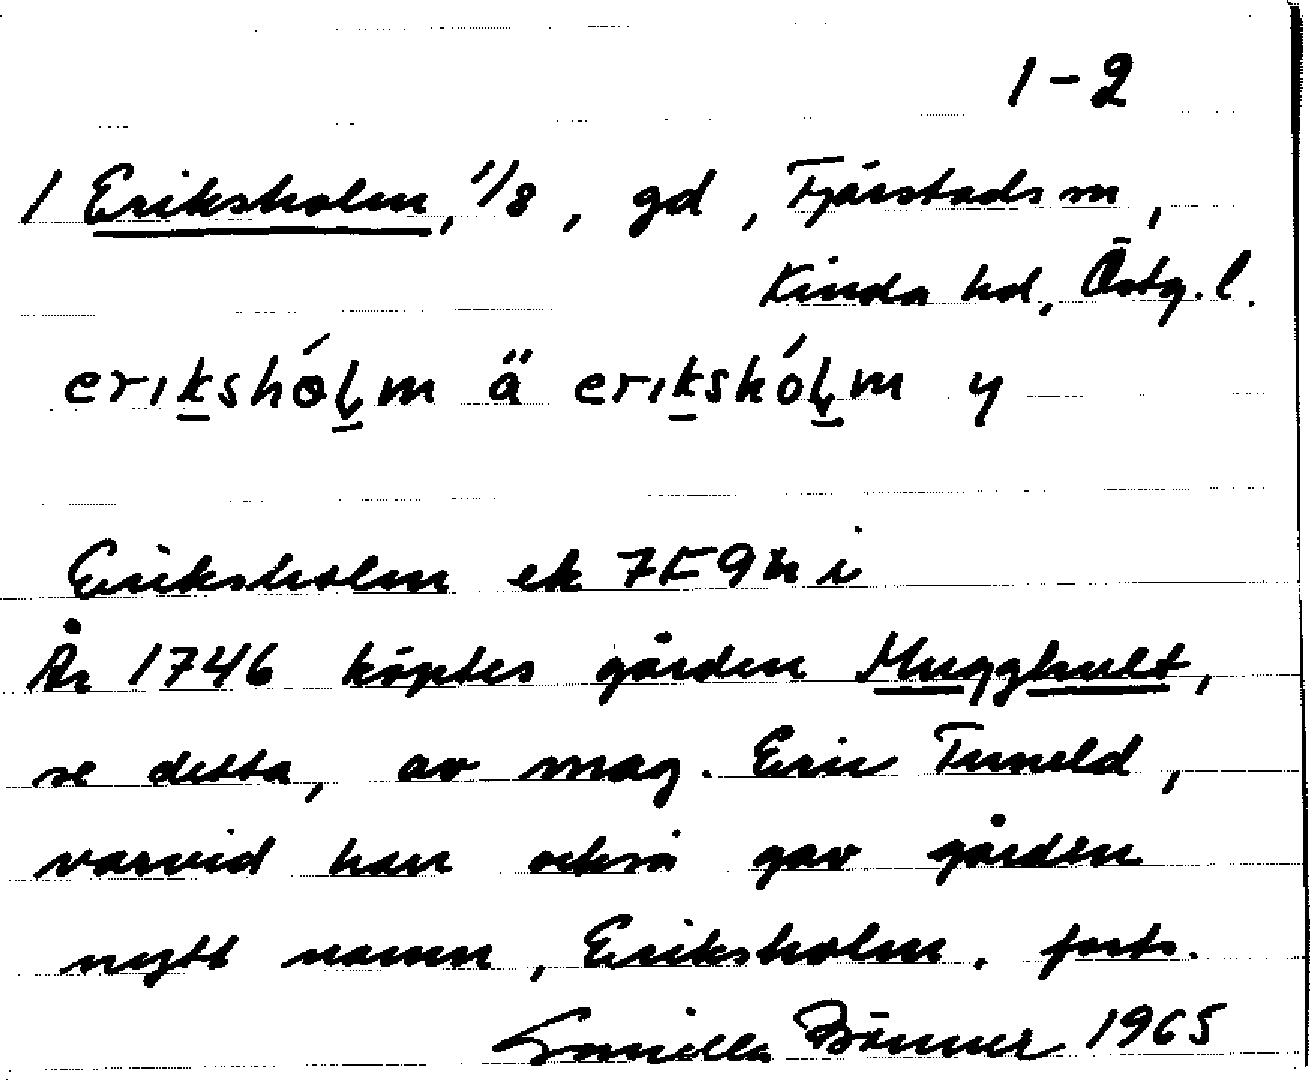 1-2
1 Eriksholm, 1/8, gd, Tjärstads sn,
Kinda hd, Östg. l.
erikshólm ä erikshólm y
Eriksholm ek 7F9h i
År 1746 köptes gården Mugghult,
se detta, av mag. Eric Tuneld,
varvid han också gav gården
nytt namn, Eriksholm. forts.
Gunilla 1965